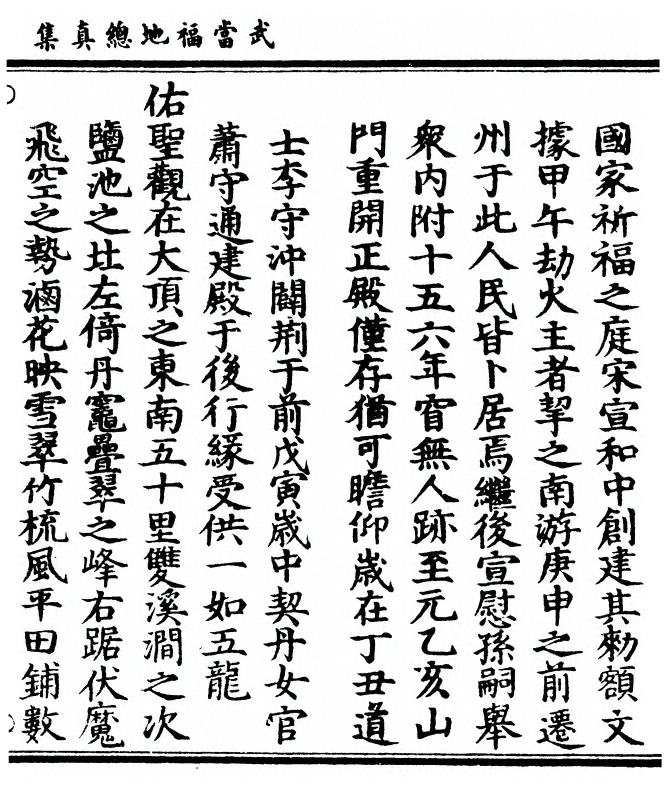 武當福地總真集
國家祈福之庭宋宣和中創建其勑額文
據甲午劫火主者挈之南游庚申之前遷
州于此人民皆卜居焉繼後宣慰孫嗣舉
衆内附十五六年窅無人跡至元乙亥山
門重開正殿僅存猶可瞻仰歲在丁丑道
士李守沖闢荆于前戊寅歲中契丹女官
蕭守通建殿于後行緣受供一如五龍
佑聖觀在大頂之東南五十里雙溪澗之次
鹽池之圵左倚丹竈疊翠之峰右踞伏魔
飛空之勢滷花映雪翠竹梳風平田鋪數